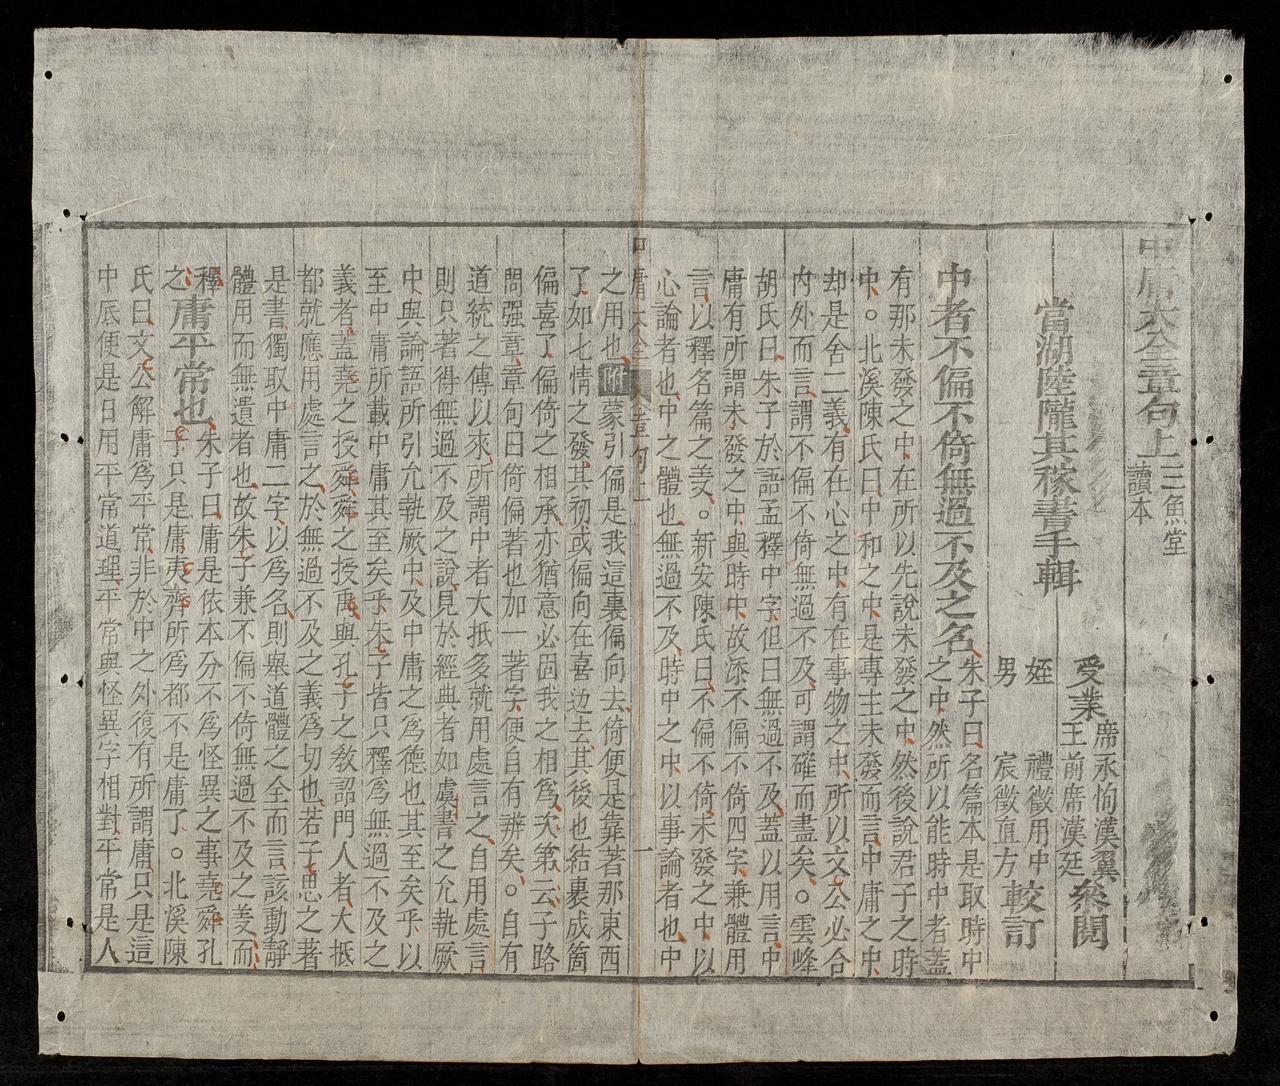 中庸大全章句上
三魚堂
讀本
當湖陸隴其稼書手輯
受業
席永恂漢翼
王前席漢廷
叅閱
姪 禮徵用中
男 宸徵直方
較訂
中者不偏不倚無過不及之名
朱子曰名篇本是取時中
之中然所以能時中者蓋
有那未發之中在所以先說未發之中然後說君子之時
中○北溪陳氏曰中和之中是專主未發而言中庸之中
却是含二義有在心之中有在事物之中所以文公必合
內外而言謂不偏不倚無過不及可謂確而盡矣○雲峰
胡氏曰朱子於語孟釋中字但曰無過不及蓋以用言中
庸有所謂未發之中與時中故添不偏不倚四字兼體用
言以釋名篇之義○新安陳氏曰不偏不倚未發之中以
心論者也中之體也無過不及時中之中以事論者也中
中庸大全 章句上 一
之用也附蒙引偏是我這裏偏向去倚便是靠著那東西
了如七情之發其初或偏向在喜边去其後也結裹成箇
偏喜了偏倚之相承亦猶意必固我之相爲次第云子路
問强章章句曰倚偏著也加一著字便自有辨矣○自有
道統之傳以來所謂中者大抵多就用處言之自用處言
則只著得無過不及之說見於經典者如虞書之允執厥
中與論語所引允執厥中及中庸之爲德也其至矣乎以
至中庸所載中庸其至矣乎朱子皆只釋爲無過不及之
義者蓋堯之授舜舜之授禹與孔子之敎詔門人者大抵
都就應用處言之於無過不及之義爲切也若子思之著
是書獨取中庸二字以爲名則舉道體之全而言該動靜
體用而無遺者也故朱子兼不偏不倚無過不及之義而
釋之
庸平常也
朱子曰庸是依本分不爲怪異之事堯舜孔
子只是庸夷齊所爲都不是庸了○北溪陳
氏曰文公解庸爲平常非於中之外復有所謂庸只是這
中底便是日用平常道理平常與怪異字相對平常是人